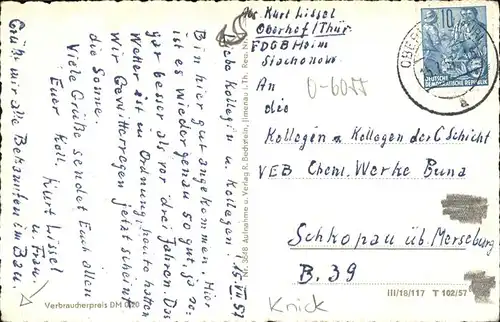 Abs. Kurt Lissel
Oberhof/Thür.
FDGB Heim
Stachonow
An
die
Kollegin u. Kollegen der C Schicht
VEB Chem. Werke Buna
Schkopau üb. Merseburg
B. 39
O-6055
Knick
10
DEUTSCHE
DEMOKRATISCHE REPUBLIK
OBERH
a
III/18/117 T 102/57
Verbraucherpreis DM 0,20
Nr. 3648 Aufnahme u. Verlag R. Bechstein, Ilmenau i. Th. Reg. Nr.
Liebe Kollegin u. Kollegen!
Bin hier gut angekommen. Hier
ist es wieder genau so gut, ja so-
gar besser als vor drei Jahren. Das
Wetter ist in Ordnung, heute hatten
Wir Gewitterregen jetzt scheint
die Sonne.
Viele Grüße sendet Euch allen
Euer Koll. Kurt Lissel
u. Frau.
Grüßt mir alle Bekannten im Bau.